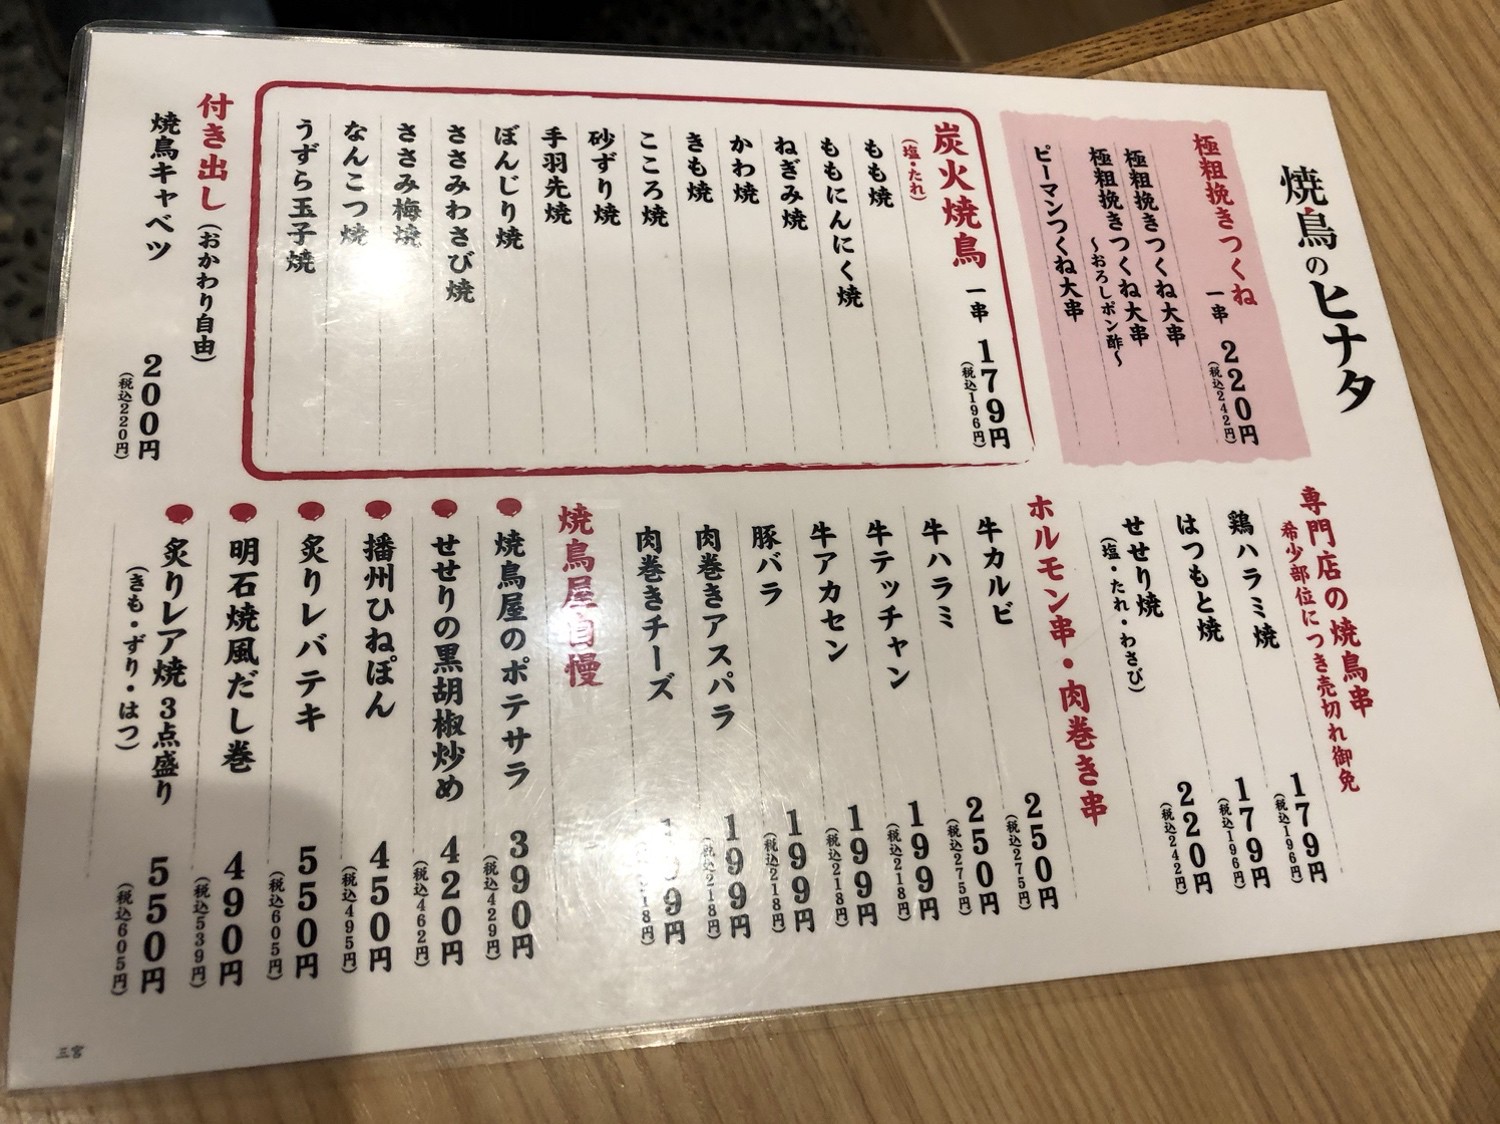 焼鳥のヒナタ
極粗挽きつくね 一串 220円
(税込242円)
極粗挽きつくね大串
極粗挽きつくね大串
〜おろしポン酢〜
ピーマンつくね大串
炭火焼鳥 一串 179円
(塩・たれ)
(税込196円)
もも焼
ももにんにく焼
ねぎみ焼
かわ焼
きも焼
こころ焼
砂ずり焼
手羽先焼
ぼんじり焼
ささみわさび焼
ささみ梅焼
なんこつ焼
うずら玉子焼
付き出し(おかわり自由)
焼鳥キャベツ 200円
(税込220円)
専門店の焼鳥串
希少部位につき売切れ御免
鶏ハラミ焼 179円
(税込196円)
はつもと焼 179円
(税込196円)
せせり焼 220円
(塩・たれ・わさび)
(税込242円)
ホルモン串・肉巻き串
牛カルビ 250円
(税込275円)
牛ハラミ 250円
(税込275円)
牛テッチャン 199円
(税込218円)
牛アカセン 199円
(税込218円)
豚バラ 199円
(税込218円)
肉巻きアスパラ 199円
(税込218円)
肉巻きチーズ 199円
(税込218円)
焼鳥屋自慢
焼鳥屋のポテサラ 390円
(税込429円)
せせりの黒胡椒炒め 420円
(税込462円)
播州ひねぽん 450円
(税込495円)
炙りレバテキ 550円
(税込605円)
明石焼風だし巻 490円
(税込539円)
炙りレア焼 3点盛り 550円
(きも・ずり・はつ)
(税込605円)
三宮